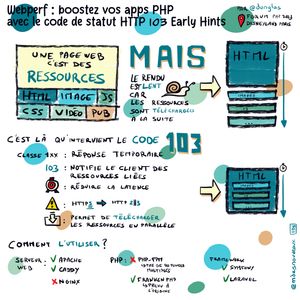 Webperf : boostez vos apps PHP
avec le code de statut HTTP 103 Early Hints
PAR @dunglas
FORUM PHP 2023
DISNEYLAND PARIS
UNE PAGE WEB
C'EST DES
RESSOURCES
HTML IMAGE JS
CSS VIDÉO PUB
MAIS
LE RENDU
EST LENT
CAR
LES RESSOURCES
SONT TÉLÉCHARGÉES
À LA SUITE
HTML
IMAGES
C'EST LÀ QU'INTERVIENT LE CODE 103
CLASSE 1XX : RÉPONSE TEMPORAIRE
103 : NOTIFIE LE CLIENT DES
RESSOURCES LIÉES
: RÉDUIRE LA LATENCE
: HTTPS HTTPS
: PERMET DE TÉLÉCHARGER
LES RESSOURCES EN PARALLÈLE
HTML
COMMENT L'UTILISER ?
SERVEUR WEB : ✓ APACHE
✓ CADDY
✗ NGINX
PHP : ✗ PHP-FPM
✓ FRANKENPHP
À L'ORIGINE
FRAMEWORK :
✓ SYMFONY
✓ LARAVEL